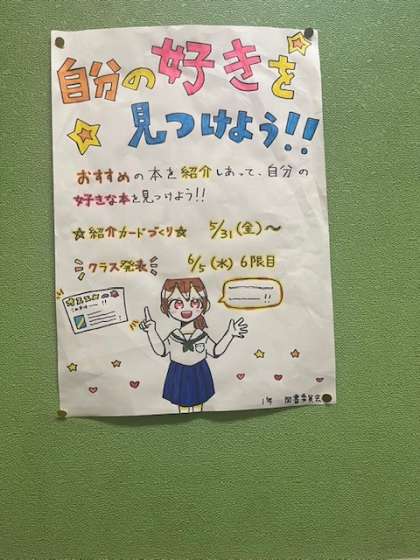 自分の好きを
見つけよう!!
おすすめの本を紹介しあって、自分の
好きな本を見つけよう!!
☆紹介カードづくり☆ 5/31(金)〜
クラス発表 6/5(水) 6限目
1年 図書委員会